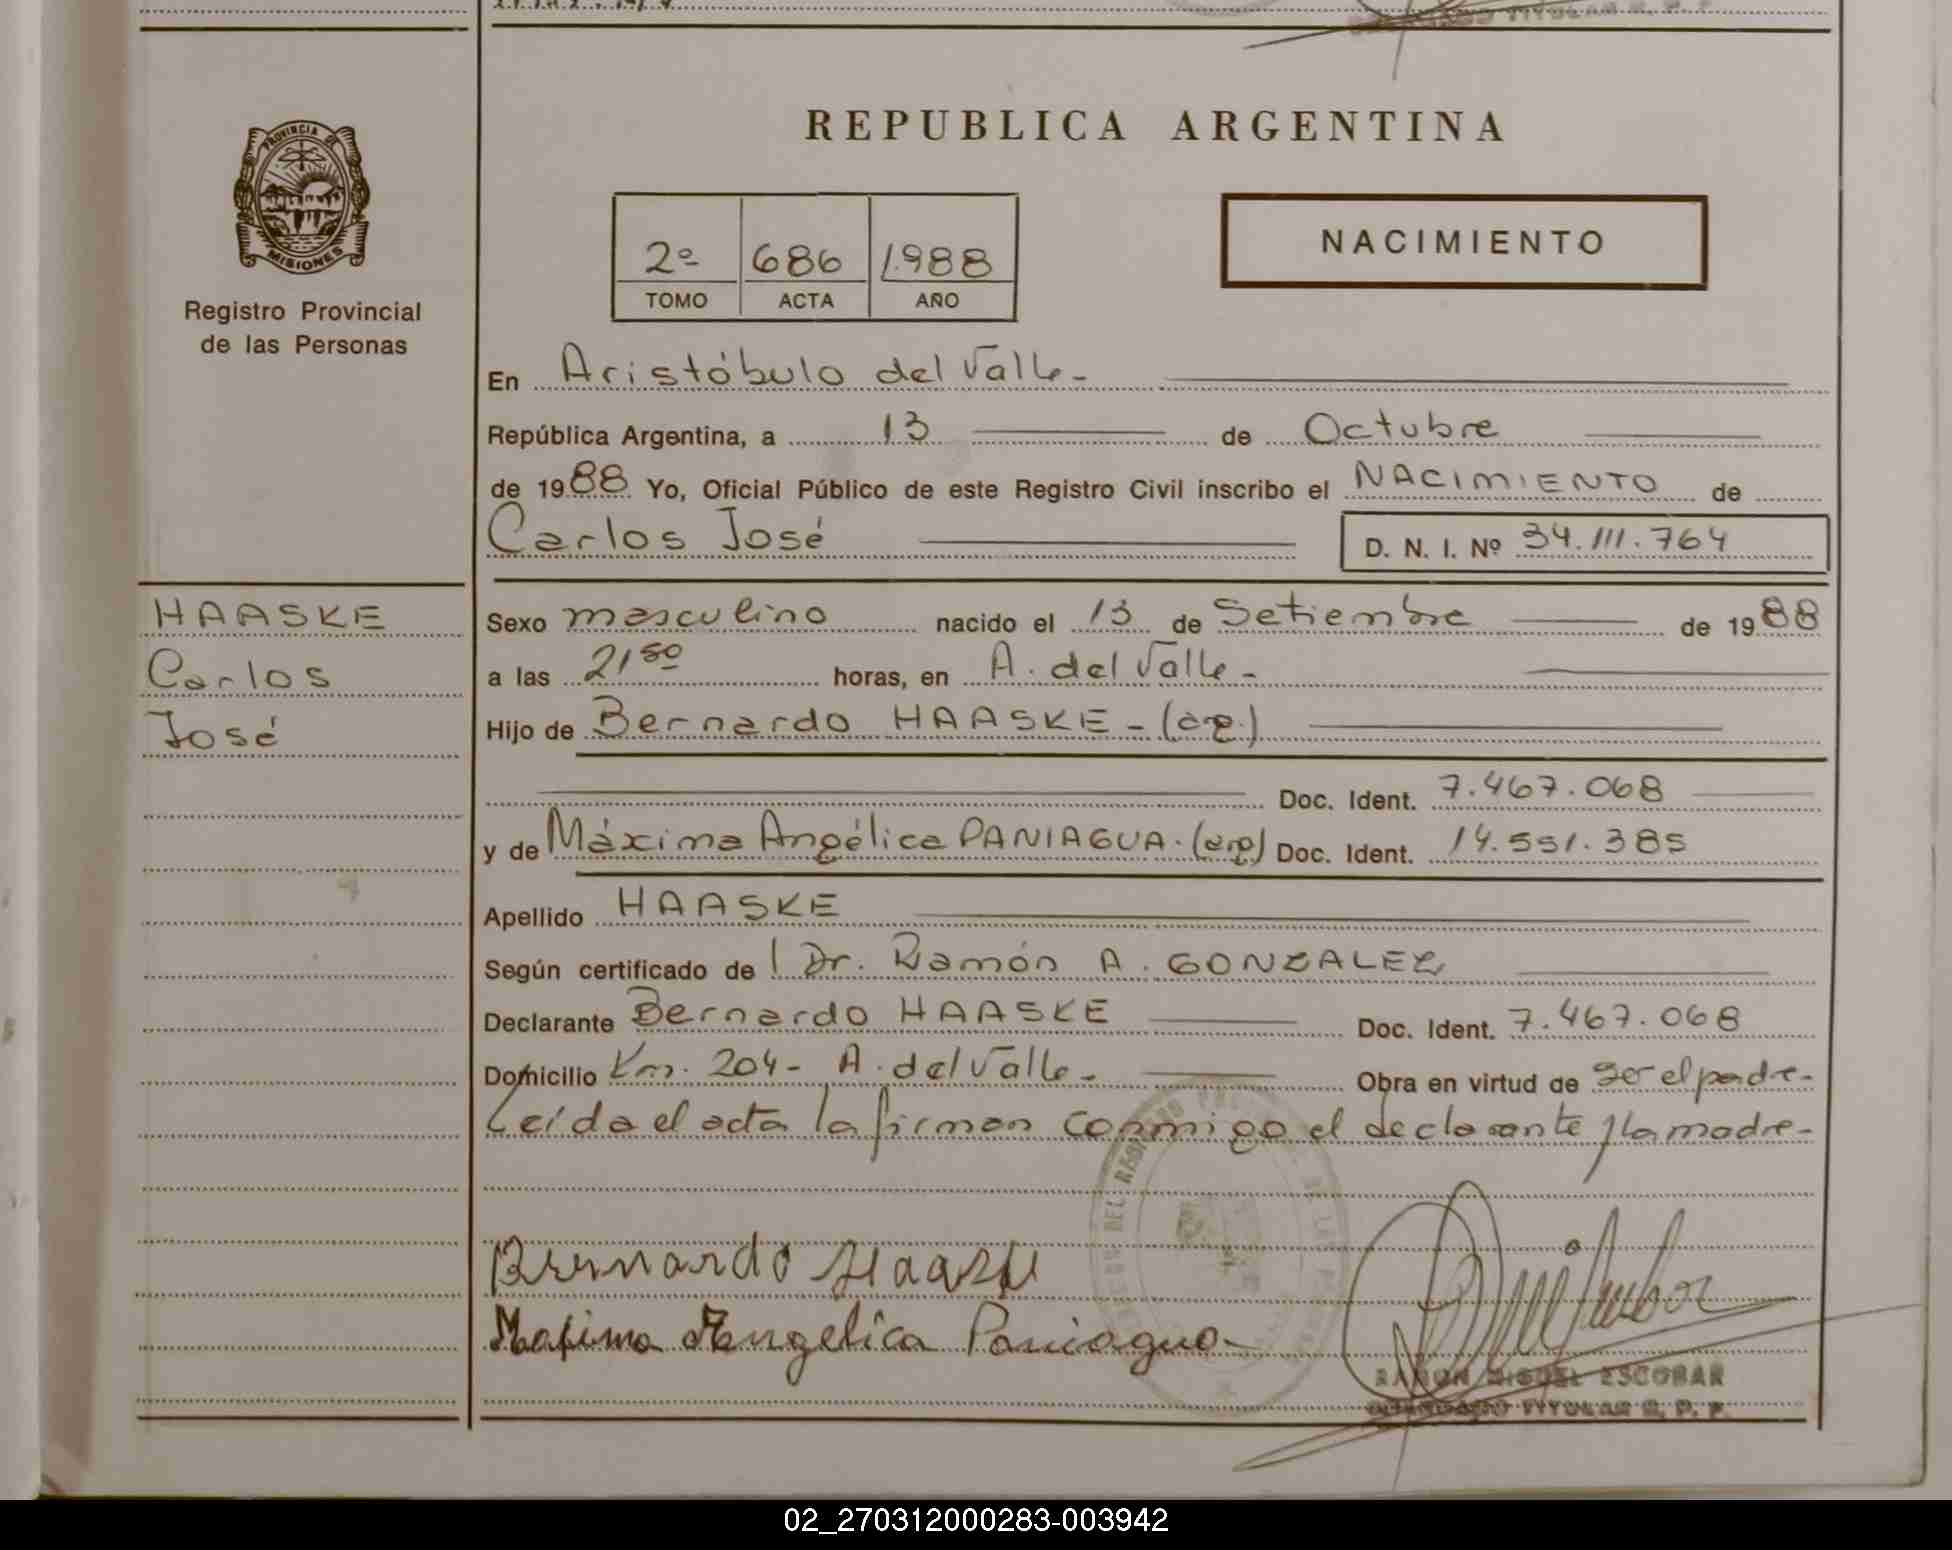 PROVINCIA DE
MISIONES
Registro Provincial
de las Personas
HAASKE
Carlos
José
REPUBLICA ARGENTINA
2º 686 1.988
TOMO ACTA AÑO
NACIMIENTO
En Aristóbulo del Valle-
República Argentina, a 13 de Octubre
de 1988 Yo, Oficial Público de este Registro Civil inscribo el NACIMIENTO de
Carlos José D. N. I. Nº 34.111.764
Sexo masculino nacido el 13 de Setiembre de 1988
a las 21 50 horas, en A. del Valle-
Hijo de Bernardo HAASKE-(arg.)
Doc. Ident. 7.467.068
y de Máxima Angélica PANIAGUA.(arg) Doc. Ident. 14.551.385
Apellido HAASKE
Según certificado de l Dr. Ramón A. GONZALEZ
Declarante Bernardo HAASKE Doc. Ident. 7.467.068
Domicilio Km. 204- A. del Valle- Obra en virtud de ser el padre-
Leída el acta la firman conmigo el declarante y la madre-
Bernardo Haaske
Maxima Angelica Paniagua-
RAMON MIGUEL ESCOBAR
TITULAR R. P. P.
02_270312000283-003942